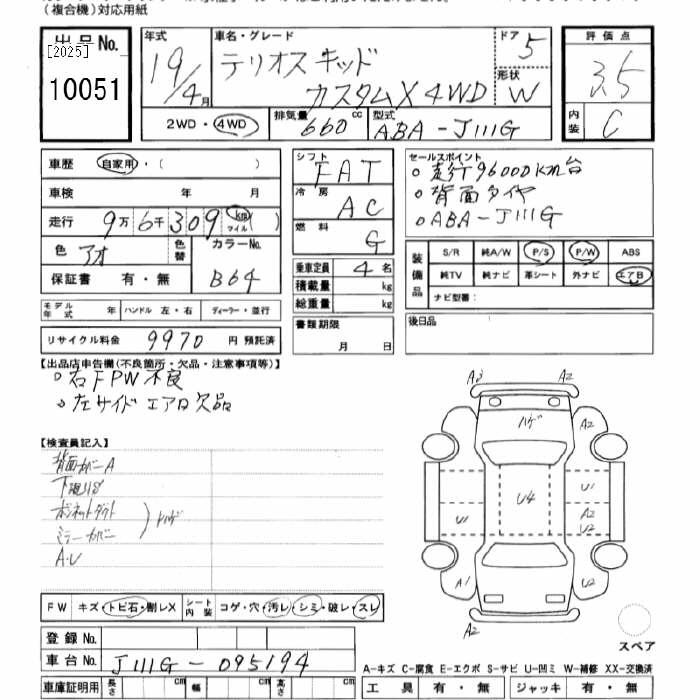 (複合機)対応用紙
出品No.
[2025]
10051
年式
19/4月
車名・グレード
テリオスキッド
カスタムX 4WD
ドア
5
形状
W
評価点
3.5
内装
C
2WD・4WD
排気量
660cc
型式
ABA-J111G
車歴 自家用・( )
車検 年 月
走行 9万6千309 km マイル ( )
色 アオ 色替
カラーNo.
B64
保証書 有・無
モデル年式 年 ハンドル 左・右 ディーラー・並行
リサイクル料金 9970 円 預託済
シフト
FAT
冷房
AC
燃料
G
乗車定員 4名
積載量 kg
総重量 kg
書類期限
月 日
セールスポイント
○走行96000km台
○背面タイヤ
○ABA-J111G
装備品
S/R 純A/W P/S P/W ABS
純TV 純ナビ 革シート 外ナビ エアB
ナビ型番:
後日品
【出品店申告欄(不良箇所・欠品・注意事項等)】
○右FPW不良
○左サイドエアロ欠品
【検査員記入】
背面カバーA
下廻りS
ボンネットダクト
ミラーカバー
ハゲ
A・U
A3 A2
ハゲ A2
U1
U4
U1 A2
U2
A1 U2
A2
スペア
FW キズ・トビ石・割レX シート内装 コゲ・穴・汚レ・シミ・破レ・スレ
登録No.
車台No. J111G-095194
車庫証明用 長さ cm 幅 cm 高さ cm
A-キズ C-腐食 E-エクボ S-サビ U-凹ミ W-補修 XX-交換済
工具 有・無 ジャッキ 有・無